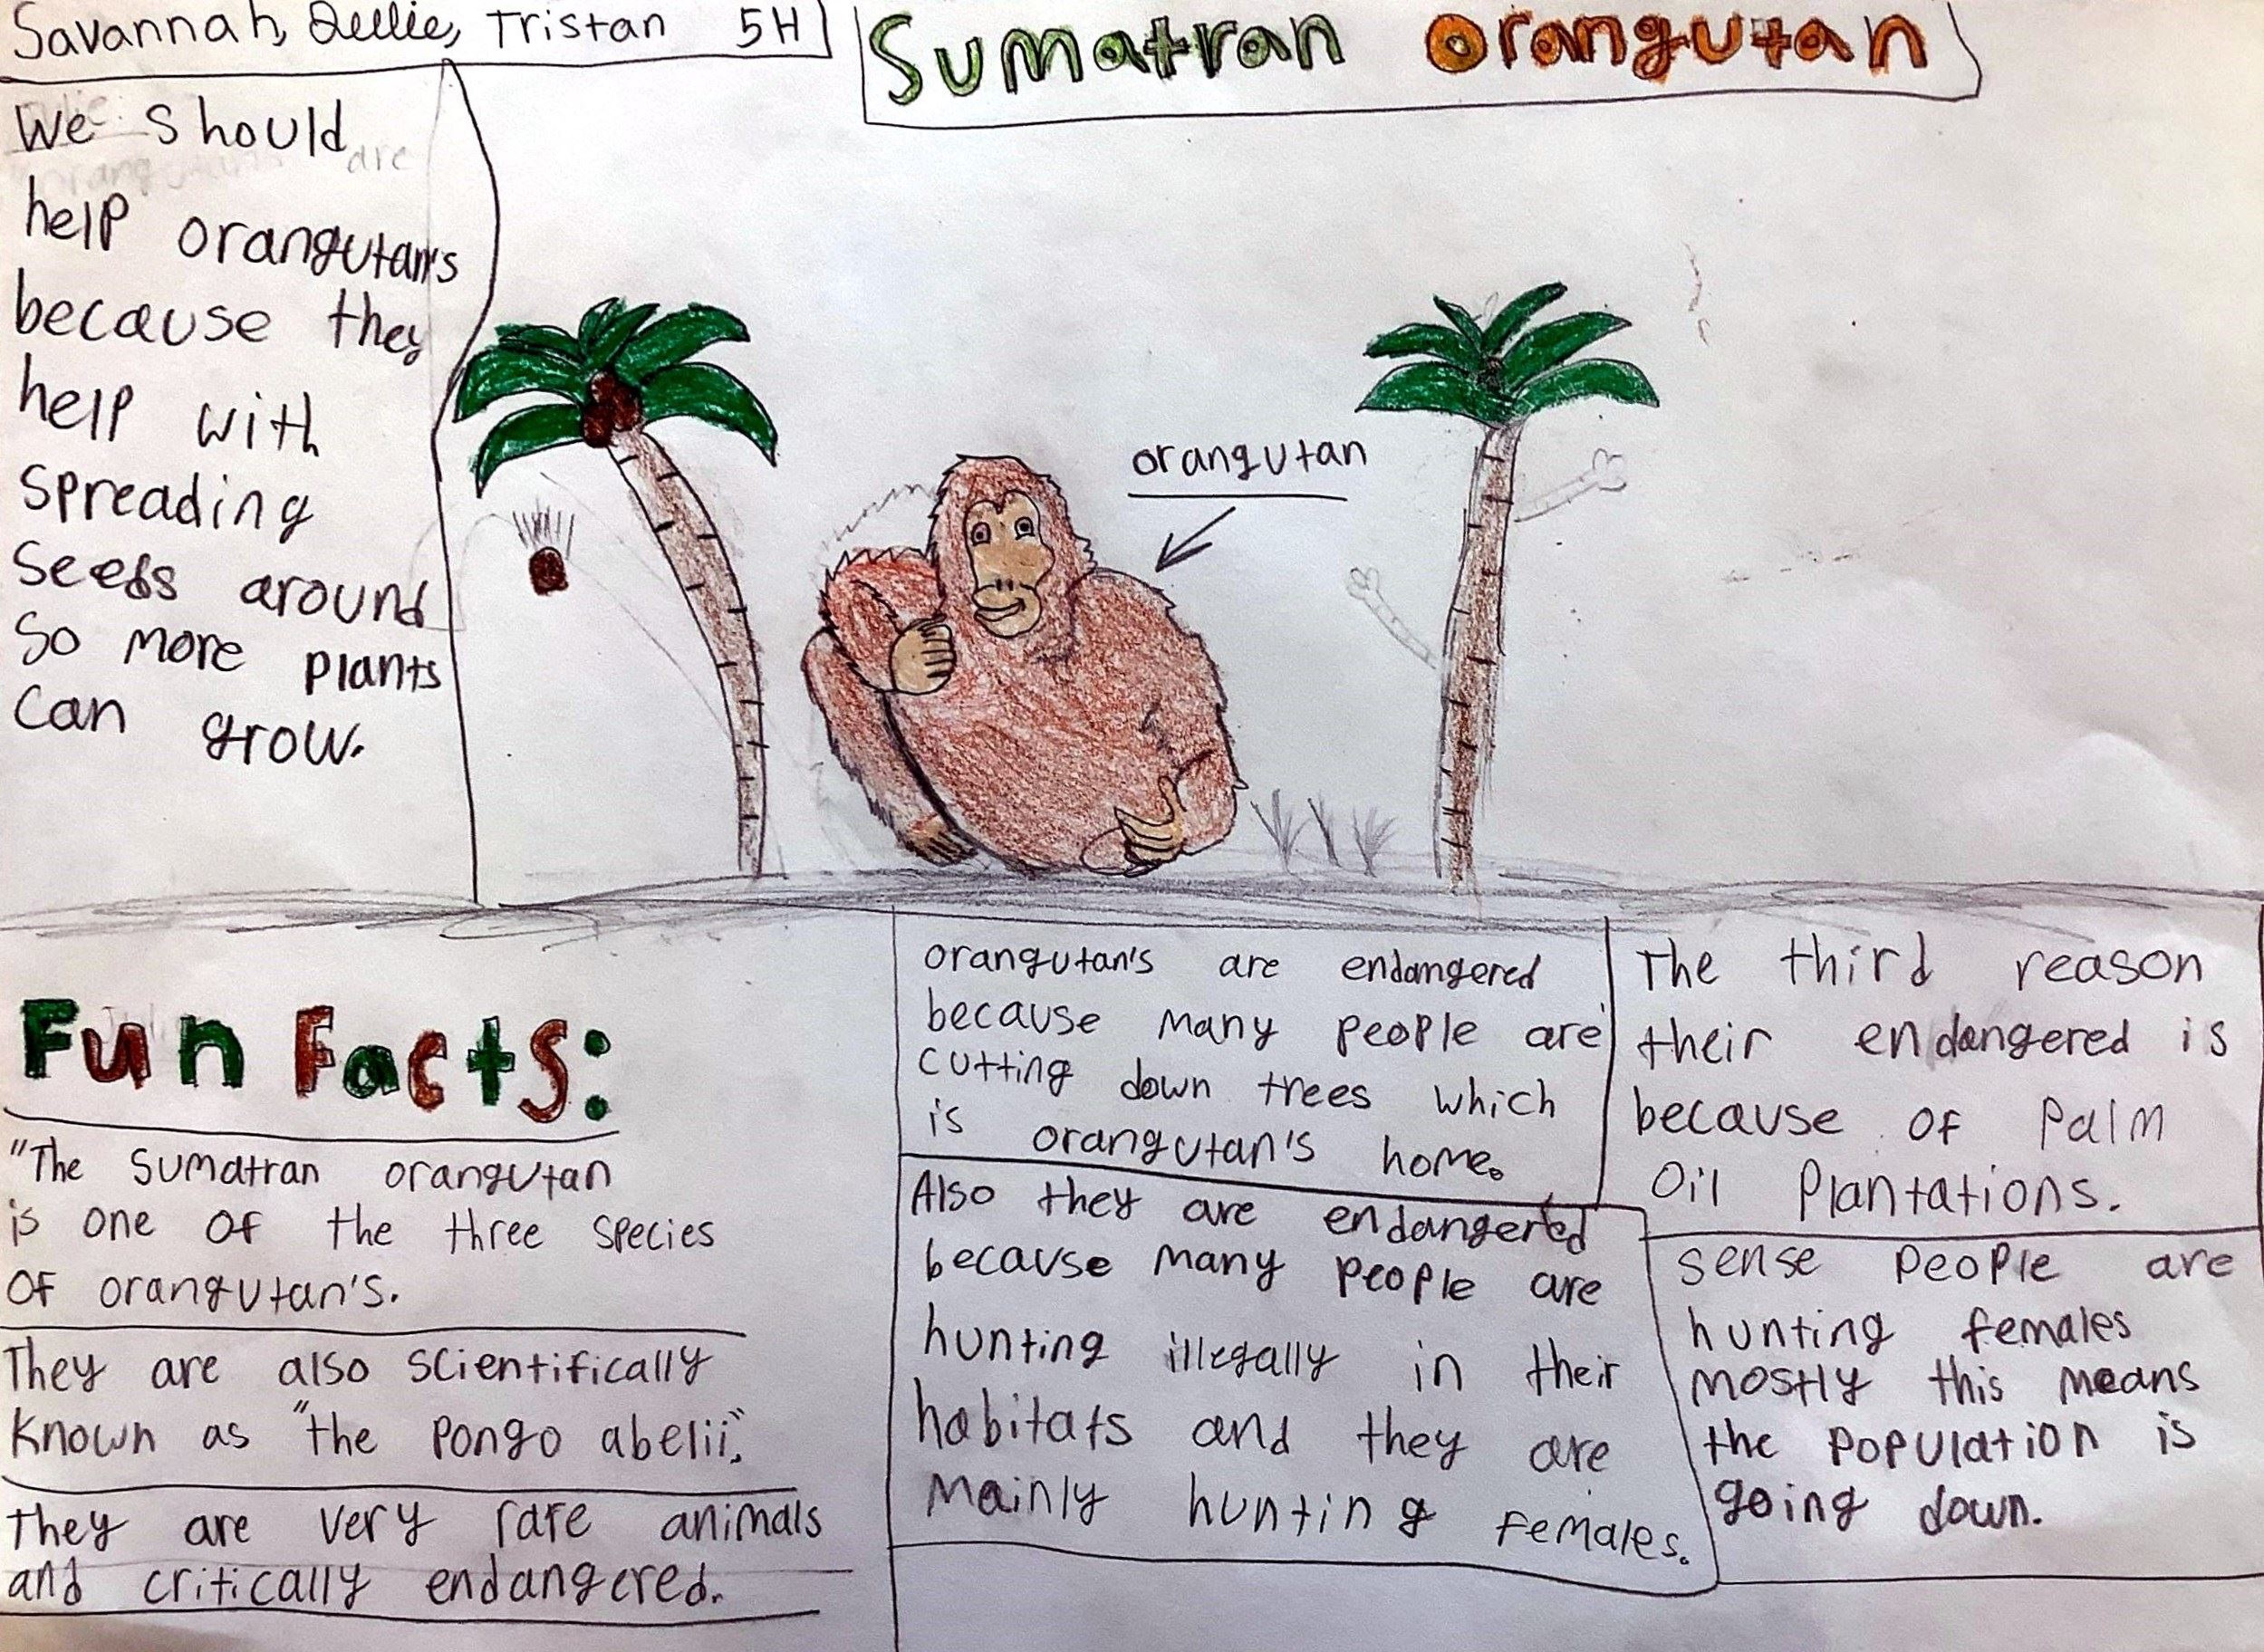 Savannah, Dellie, Tristan 5H
Sumatran orangutan
We should
help orangutan's
because they
help with
spreading
seeds around
so more plants
can grow.
orangutan
Fun Facts:
"The Sumatran orangutan
is one of the three species
of orangutan's.
They are also scientifically
known as "the pongo abelii".
they are very rare animals
and critically endangered.
orangutan's are endangered
because many people are
cutting down trees which
is orangutan's home.
Also they are endangered
because many people are
hunting illegally in their
habitats and they are
mainly hunting females.
The third reason
their endangered is
because of palm
oil plantations.
sense people are
hunting females
mostly this means
the population is
going down.